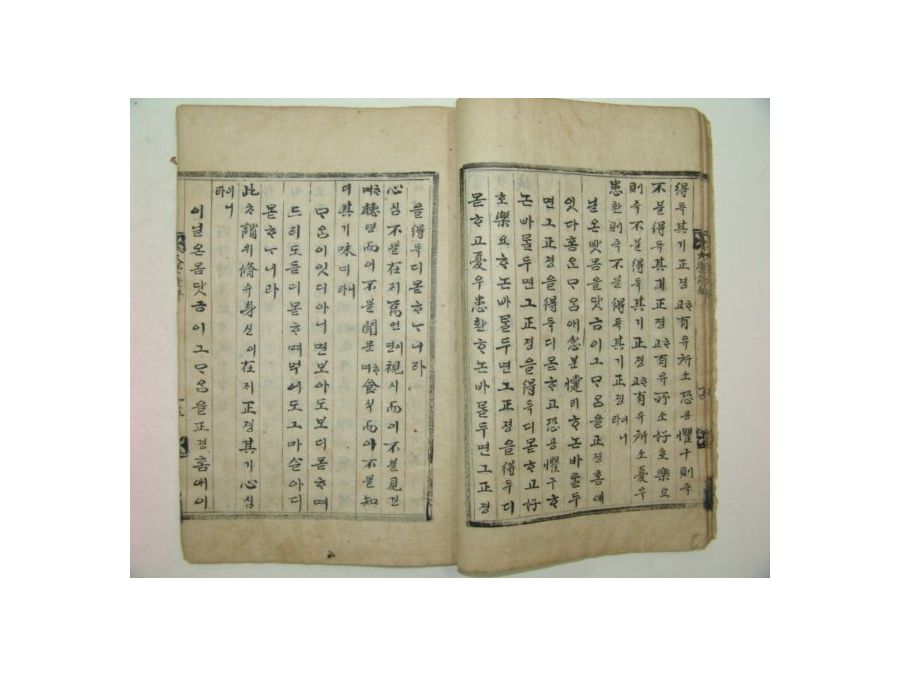 得득其기正졍ᄒᆞ고有유所소恐공懼구則즉
不블得득其기正졍ᄒᆞ고有유所소好호樂요
則즉不블得득其기正졍ᄒᆞ고有유所소憂우
患환則즉不블得득其기正졍이니라
닐온밧몸을닷금이그ᄆᆞᄋᆞᆷ을正졍홈애
잇다홈ᄋᆞᆫᄆᆞᄋᆞᆷ애忿분懥티ᄒᆞ논바ᄅᆞᆯ두
면그正졍을得득디몯ᄒᆞ고恐공懼구ᄒᆞ
논바ᄅᆞᆯ두면그正졍을得득디몯ᄒᆞ고好
호樂요ᄒᆞ논바ᄅᆞᆯ두면그正졍을得득디
몯ᄒᆞ고憂우患환ᄒᆞ논바ᄅᆞᆯ두면그正졍
을得득디몯ᄒᆞᄂᆞ니라
心심不블在지焉언이면視시而이不블見견
ᄒᆞ며聽텽而이不블聞문ᄒᆞ며食식而이不블知
디其기味미니라
ᄆᆞᄋᆞᆷ이잇디아니면보아도보디몯ᄒᆞ며
드러도듣디몯ᄒᆞ며먹어도그마슬아디
몯ᄒᆞᄂᆞ니라
此ᄎᆞ謂위脩슈身신이在지正졍其기心심
이니라
이닐온몸닷금이그ᄆᆞᄋᆞᆷ을正졍홈애이